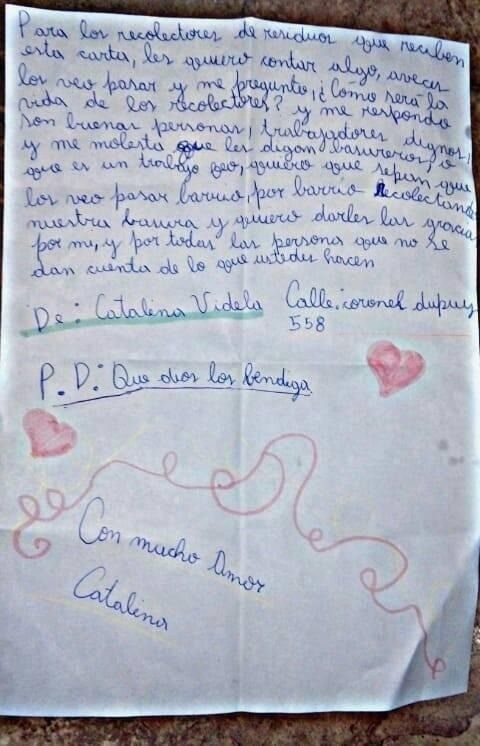 Para los recolectores de residuos que reciben
esta carta, les quiero contar algo, aveces
los veo pasar y me pregunto, ¿Cómo será la
vida de los recolectores? y me respondo
son buenas personas, trabajadores dignos,
y me molesta que les digam basureros, o
que es un trabajo feo, quiero que sepan que
los veo pasar barrio, por barrio Recolectando
nuestra basura y quiero darles las gracias
por mi, y por todas las persona que no se
dan cuenta de lo que ustedes hacen
De: Catalina Videla Calle: coronel dupuy
558
P.D: Que dios los bendiga
Con mucho Amor
Catalina